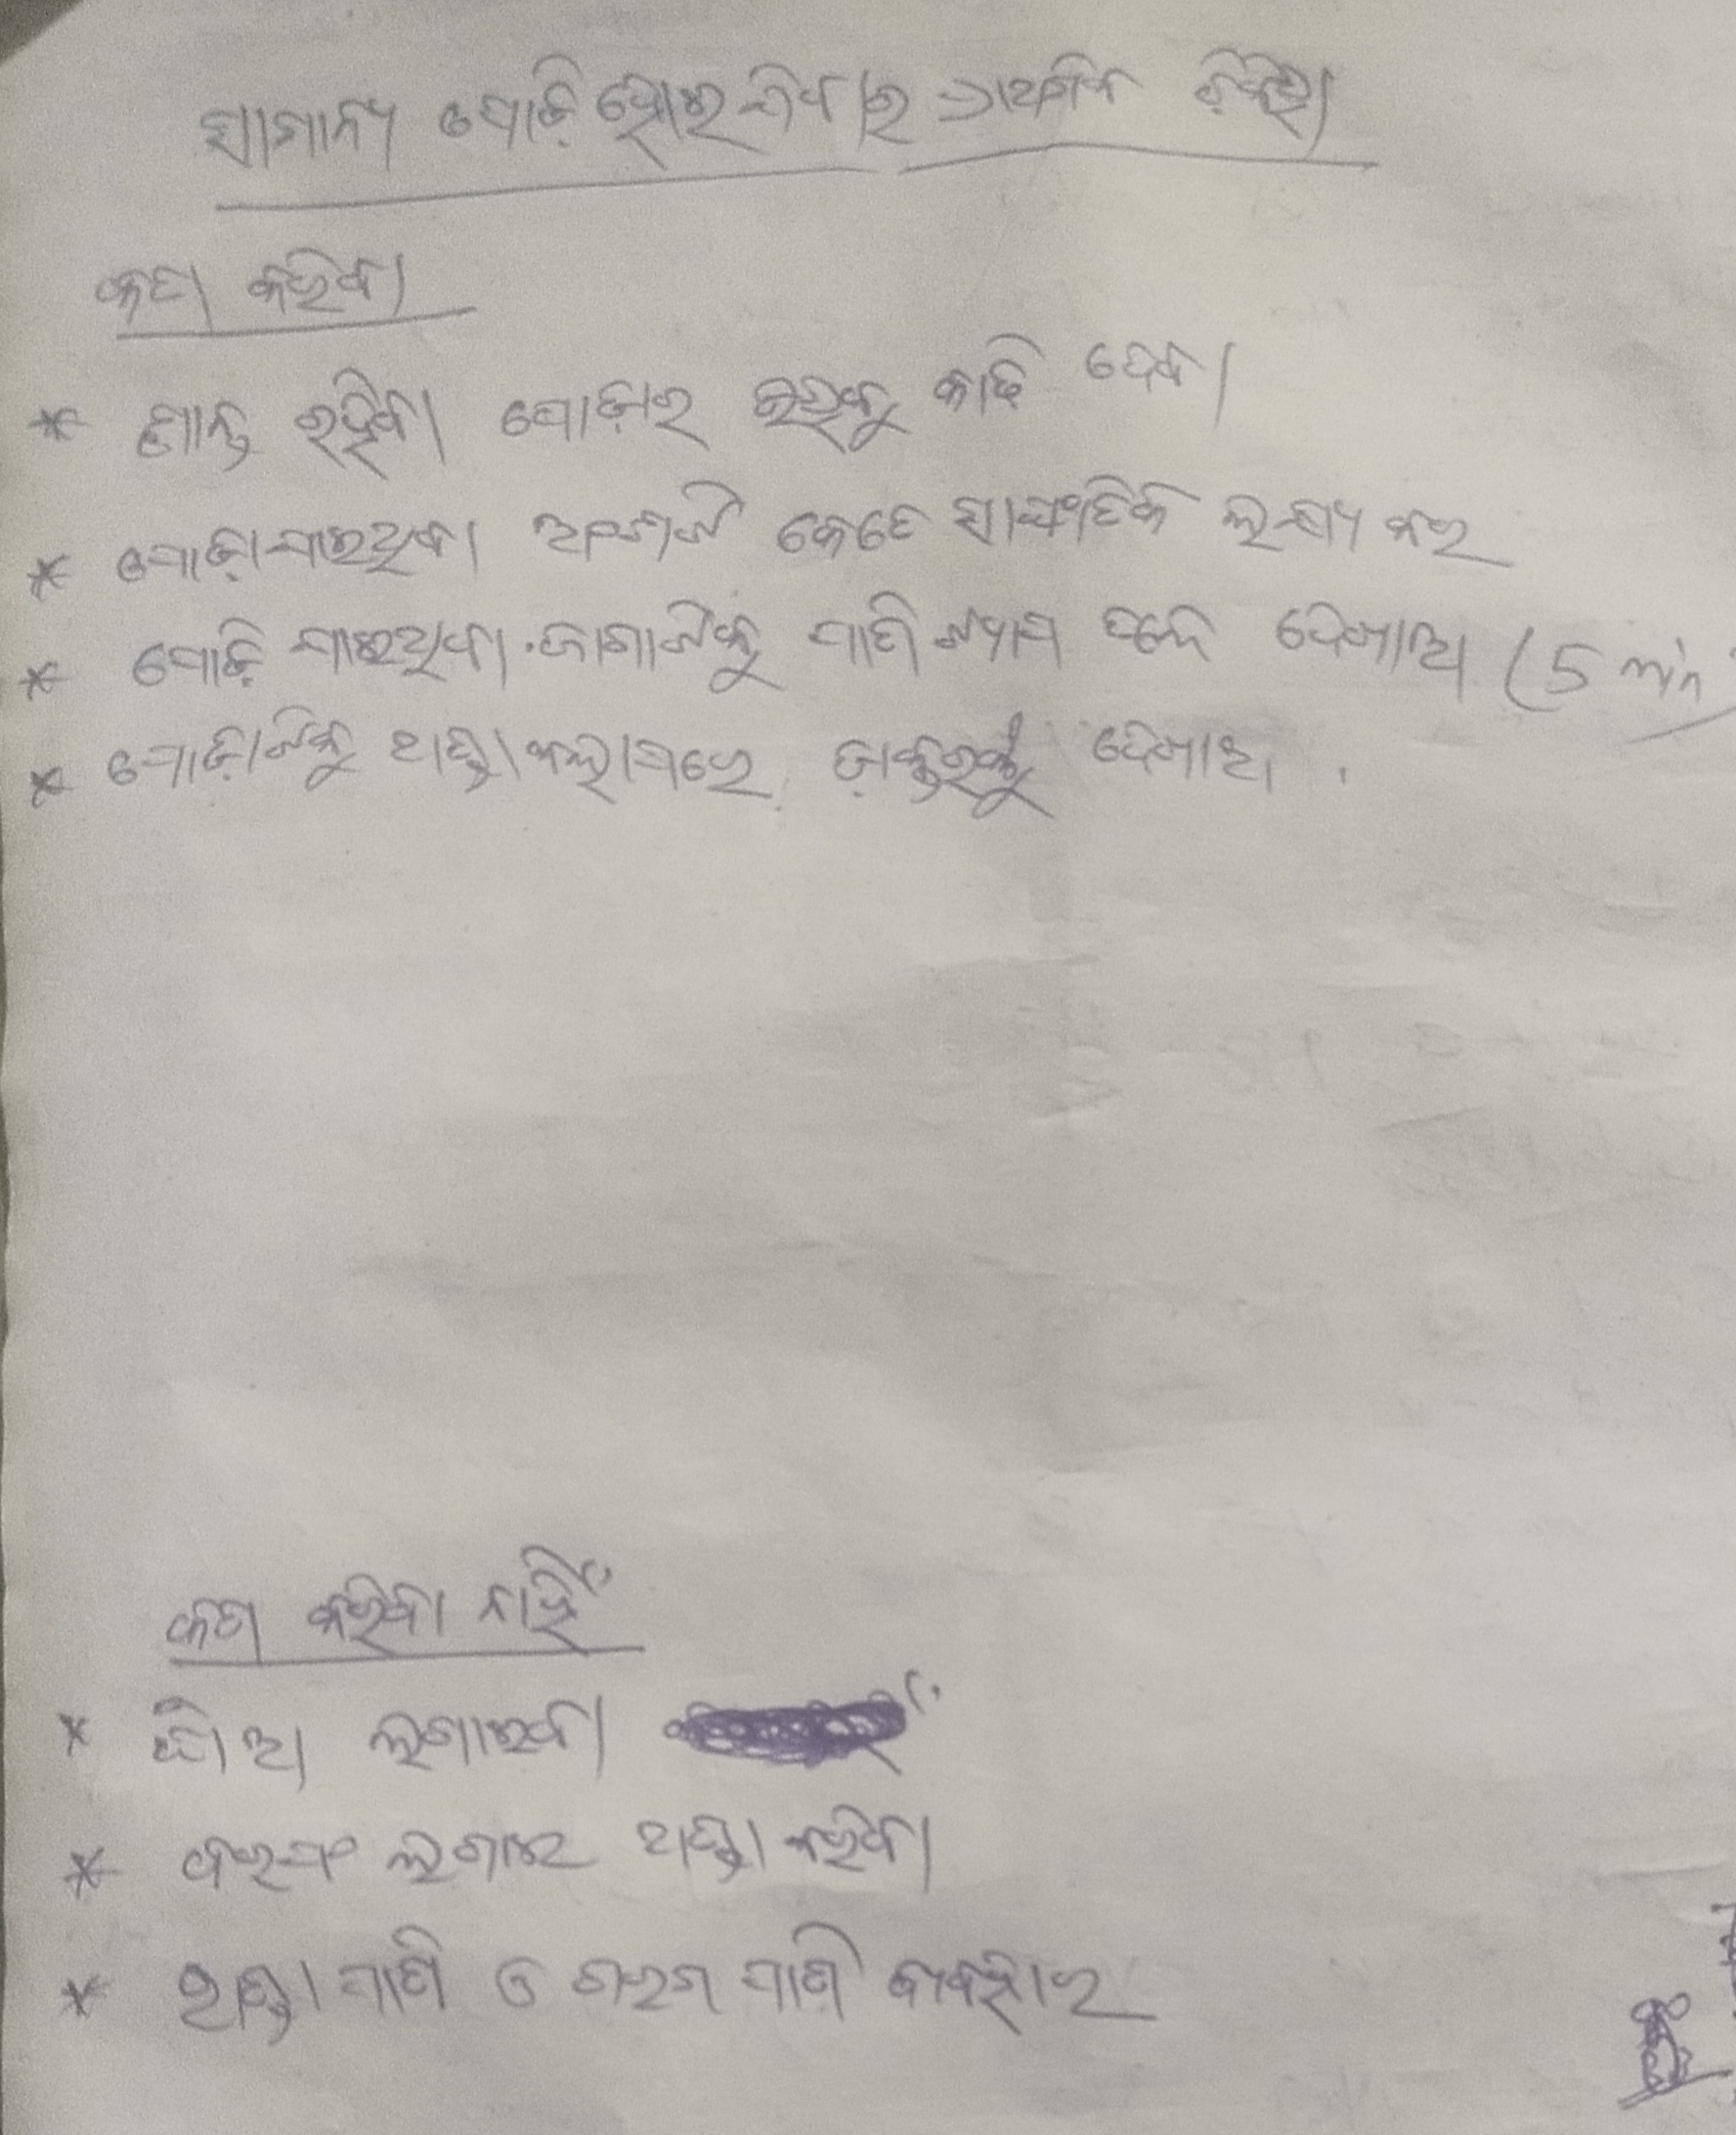 ସାମାନ୍ୟ ପୋଡ଼ି ହୋଇଯିବାର ପ୍ରାଥମିକ ଚିକିତ୍ସା
କଣ କରିବା
* ଶାନ୍ତ ରହିବା ପୋଡ଼ାର ଉତ୍ସକୁ କାଢି ଦେବା
* ପୋଡ଼ା ଯାଇଥିବା ଅଂଶଟି କେତେ ସାଙ୍ଘାତିକ ଲକ୍ଷ୍ୟ କର
* ପୋଡ଼ି ଯାଇଥିବା ଜାଗାଟିକୁ ପାଣି ଟ୍ୟାପ ତଳେ ଦେଖାଅ (5 min)
* ପୋଡ଼ାଟିକୁ ଥଣ୍ଡା କଲାପରେ ଡ଼ାକ୍ତରଙ୍କୁ ଦେଖାଅ .
କଣ କରିବା ନାହିଁ
* ଘିଅ ଲଗାଇବା
* ବରଫ ଲଗାଇ ଥଣ୍ଡା କରିବା
* ଥଣ୍ଡା ପାଣି ଓ ଗରମ ପାଣି ବ୍ୟବହାର